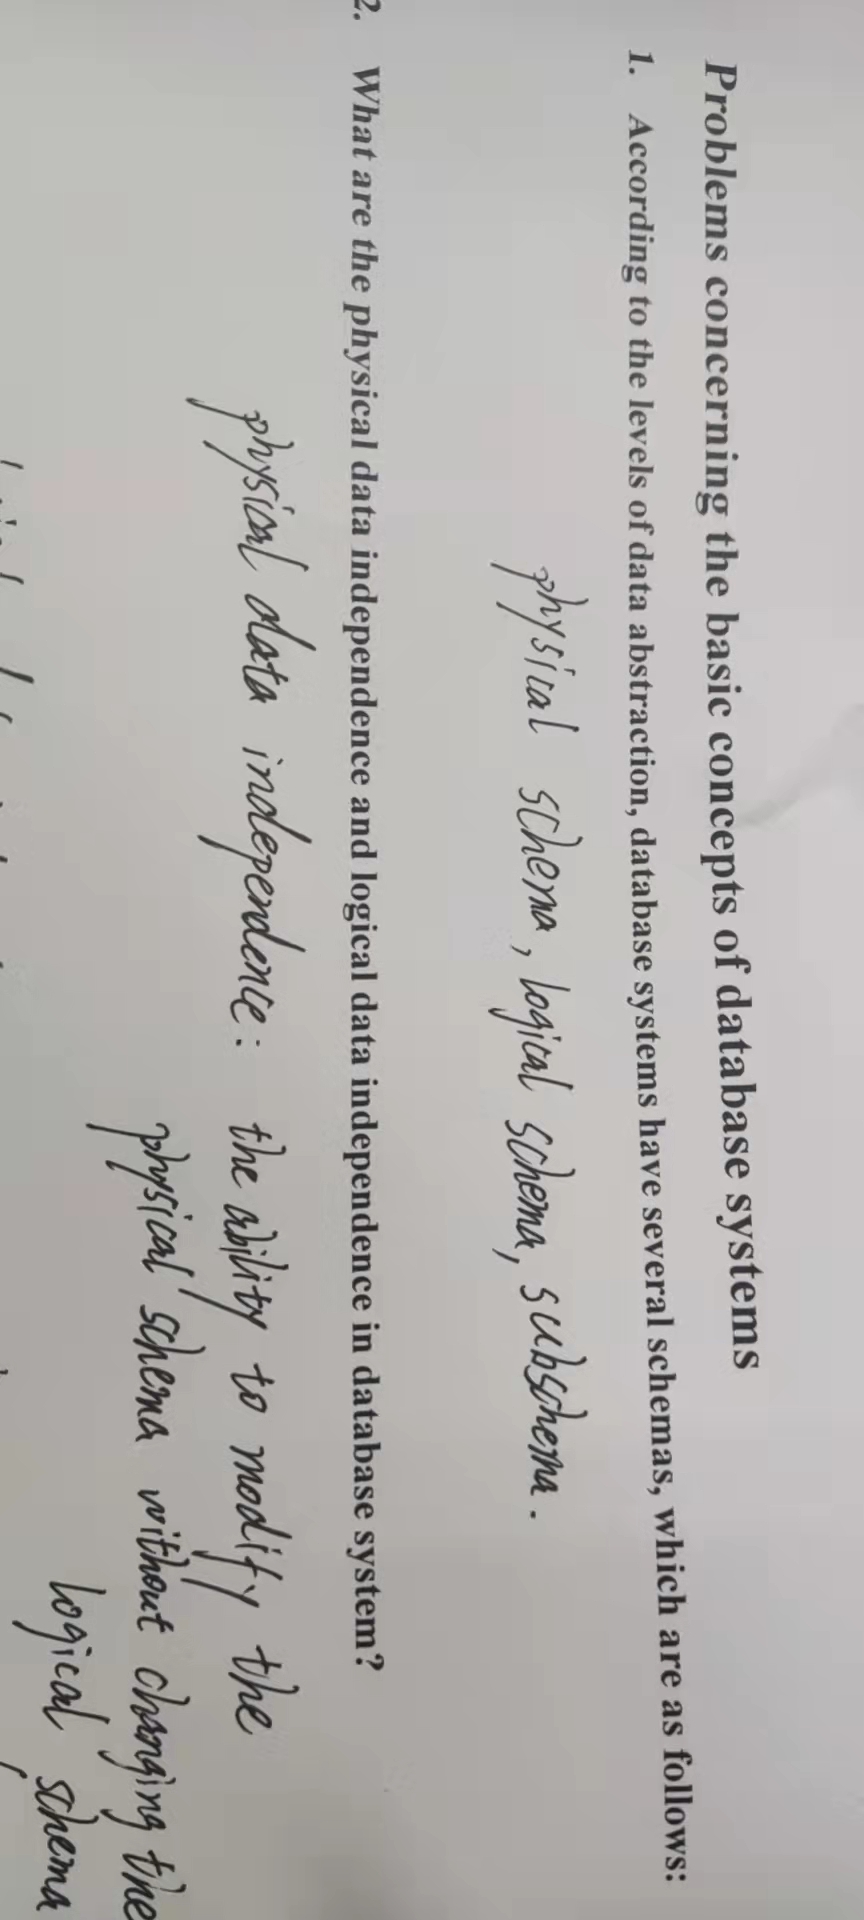 Problems concerning the basic concepts of database systems
1. According to the levels of data abstraction, database systems have several schemas, which are as follows:
physical schema, logical schema, subschema.
2. What are the physical data independence and logical data independence in database system?
physical data independence: the ability to modify the
physical schema without changing the
logical schema